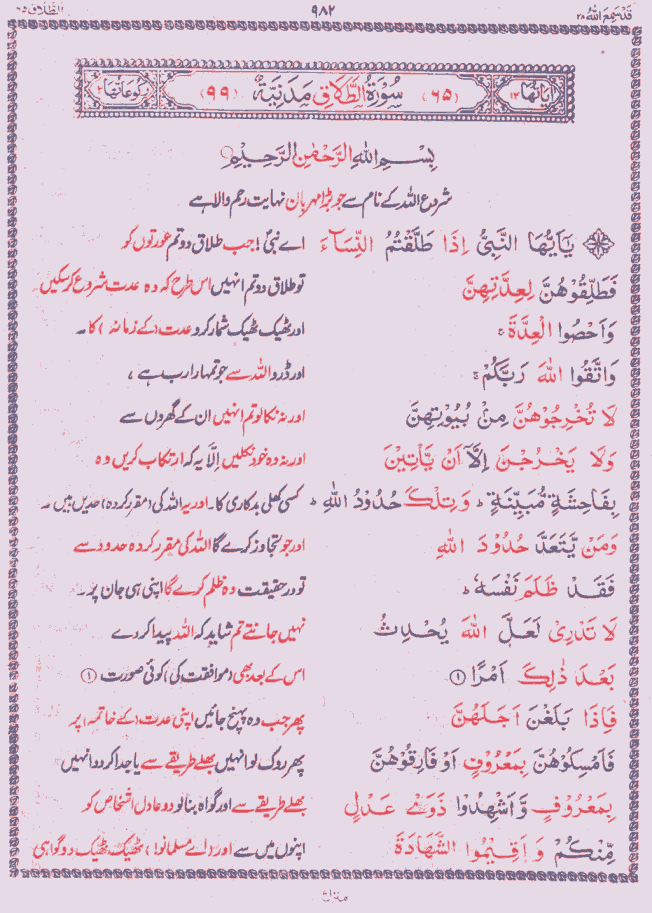 قَدْ سَمِعَ اللهُ ۲۸ ۹۸۲ الطَّلَاق ۶۵
اٰيَاتُهَا ۱۲ (۶۵) سُوْرَةُ الطَّلَاقِ مَدَنِيَّةٌ (۹۹) رُكُوْعَاتُهَا ۲
بِسْمِ اللهِ الرَّحْمٰنِ الرَّحِيْمِ
شروع اللہ کے نام سے جو بڑا مہربان نہایت رحم والا ہے
يٰٓاَيُّهَا النَّبِيُّ اِذَا طَلَّقْتُمُ النِّسَآءَ اے نبیؐ! جب طلاق دو تم عورتوں کو
فَطَلِّقُوْهُنَّ لِعِدَّتِهِنَّ تو طلاق دو تم انہیں اس طرح کہ وہ عدت شروع کرسکیں
وَاَحْصُوا الْعِدَّةَ ۚ اور ٹھیک ٹھیک شمار کرو عدت (کے زمانہ) کا۔
وَاتَّقُوا اللهَ رَبَّكُمْ ۚ اور ڈرو اللہ سے جو تمہارا رب ہے ،
لَا تُخْرِجُوْهُنَّ مِنْۢ بُيُوْتِهِنَّ اور نہ نکالو تم انہیں ان کے گھروں سے
وَلَا يَخْرُجْنَ اِلَّآ اَنْ يَّاْتِيْنَ اور نہ وہ خود نکلیں اِلَّا یہ کہ ارتکاب کریں وہ
بِفَاحِشَةٍ مُّبَيِّنَةٍ ؕ وَتِلْكَ حُدُوْدُ اللهِ ؕ کسی کھلی بدکاری کا۔ اور یہ اللہ کی (مقرر کردہ) حدیں ہیں ۔
وَمَنْ يَّتَعَدَّ حُدُوْدَ اللهِ اور جو تجاوز کرے گا اللہ کی مقرر کردہ حدود سے
فَقَدْ ظَلَمَ نَفْسَهٗ ؕ تو درحقیقت وہ ظلم کرے گا اپنی ہی جان پر۔
لَا تَدْرِيْ لَعَلَّ اللهَ يُحْدِثُ نہیں جانتے تم شاید کہ اللہ پیدا کردے
بَعْدَ ذٰلِكَ اَمْرًا ① اس کے بعد بھی (موافقت کی) کوئی صورت ①
فَاِذَا بَلَغْنَ اَجَلَهُنَّ پھر جب وہ پہنچ جائیں اپنی عدت (کے خاتمہ) پر
فَاَمْسِكُوْهُنَّ بِمَعْرُوْفٍ اَوْ فَارِقُوْهُنَّ پھر روک لو انہیں بھلے طریقے سے یا جدا کردو انہیں
بِمَعْرُوْفٍ وَّاَشْهِدُوْا ذَوَيْ عَدْلٍ بھلے طریقے سے اور گواہ بنالو دو عادل اشخاص کو
مِّنْكُمْ وَاَقِيْمُوا الشَّهَادَةَ اپنوں میں سے اور (اے مسلمانو!) ٹھیک ٹھیک دو گواہی